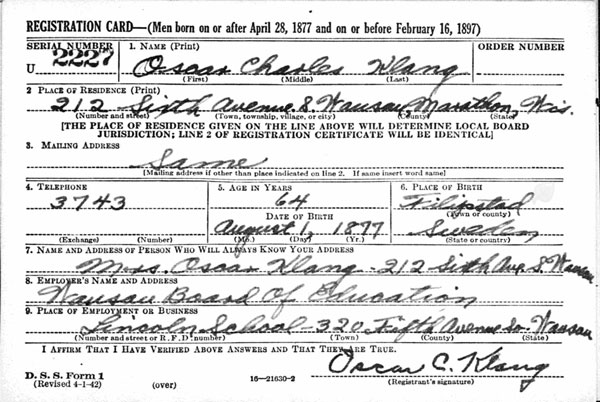 REGISTRATION CARD—(Men born on or after April 28, 1877 and on or before February 16, 1897)
SERIAL NUMBER 1. NAME (Print) ORDER NUMBER
U 2227 Oscar Charles Klang
(First) (Middle) (Last)
2 PLACE OF RESIDENCE (Print)
212 Sixth Avenue S. Wausau, Marathon, Wis.
(Number and street) (Town, township, village, or city) (County) (State)
[THE PLACE OF RESIDENCE GIVEN ON THE LINE ABOVE WILL DETERMINE LOCAL BOARD
JURISDICTION; LINE 2 OF REGISTRATION CERTIFICATE WILL BE IDENTICAL]
3. MAILING ADDRESS
Same
[Mailing address if other than place indicated on line 2. If same insert word same]
4. TELEPHONE 5. AGE IN YEARS 6. PLACE OF BIRTH
3743 64 Filipstad
DATE OF BIRTH (Town or county)
August 1, 1877 Sweden
(Exchange) (Number) (Mo.) (Day) (Yr.) (State or country)
7. NAME AND ADDRESS OF PERSON WHO WILL ALWAYS KNOW YOUR ADDRESS
Mrs. Oscar Klang - 212 Sixth Ave S. Wausau
8. EMPLOYER'S NAME AND ADDRESS
Wausau Board Of Education
9. PLACE OF EMPLOYMENT OR BUSINESS
Lincoln School - 320 Fifth Avenue So. Wausau
(Number and street or R. F. D. number) (Town) (County) (State)
I AFFIRM THAT I HAVE VERIFIED ABOVE ANSWERS AND THAT THEY ARE TRUE.
Oscar C. Klang
D. S. S. Form 1
(Revised 4-1-42) (over) 16—21630-2 (Registrant's signature)